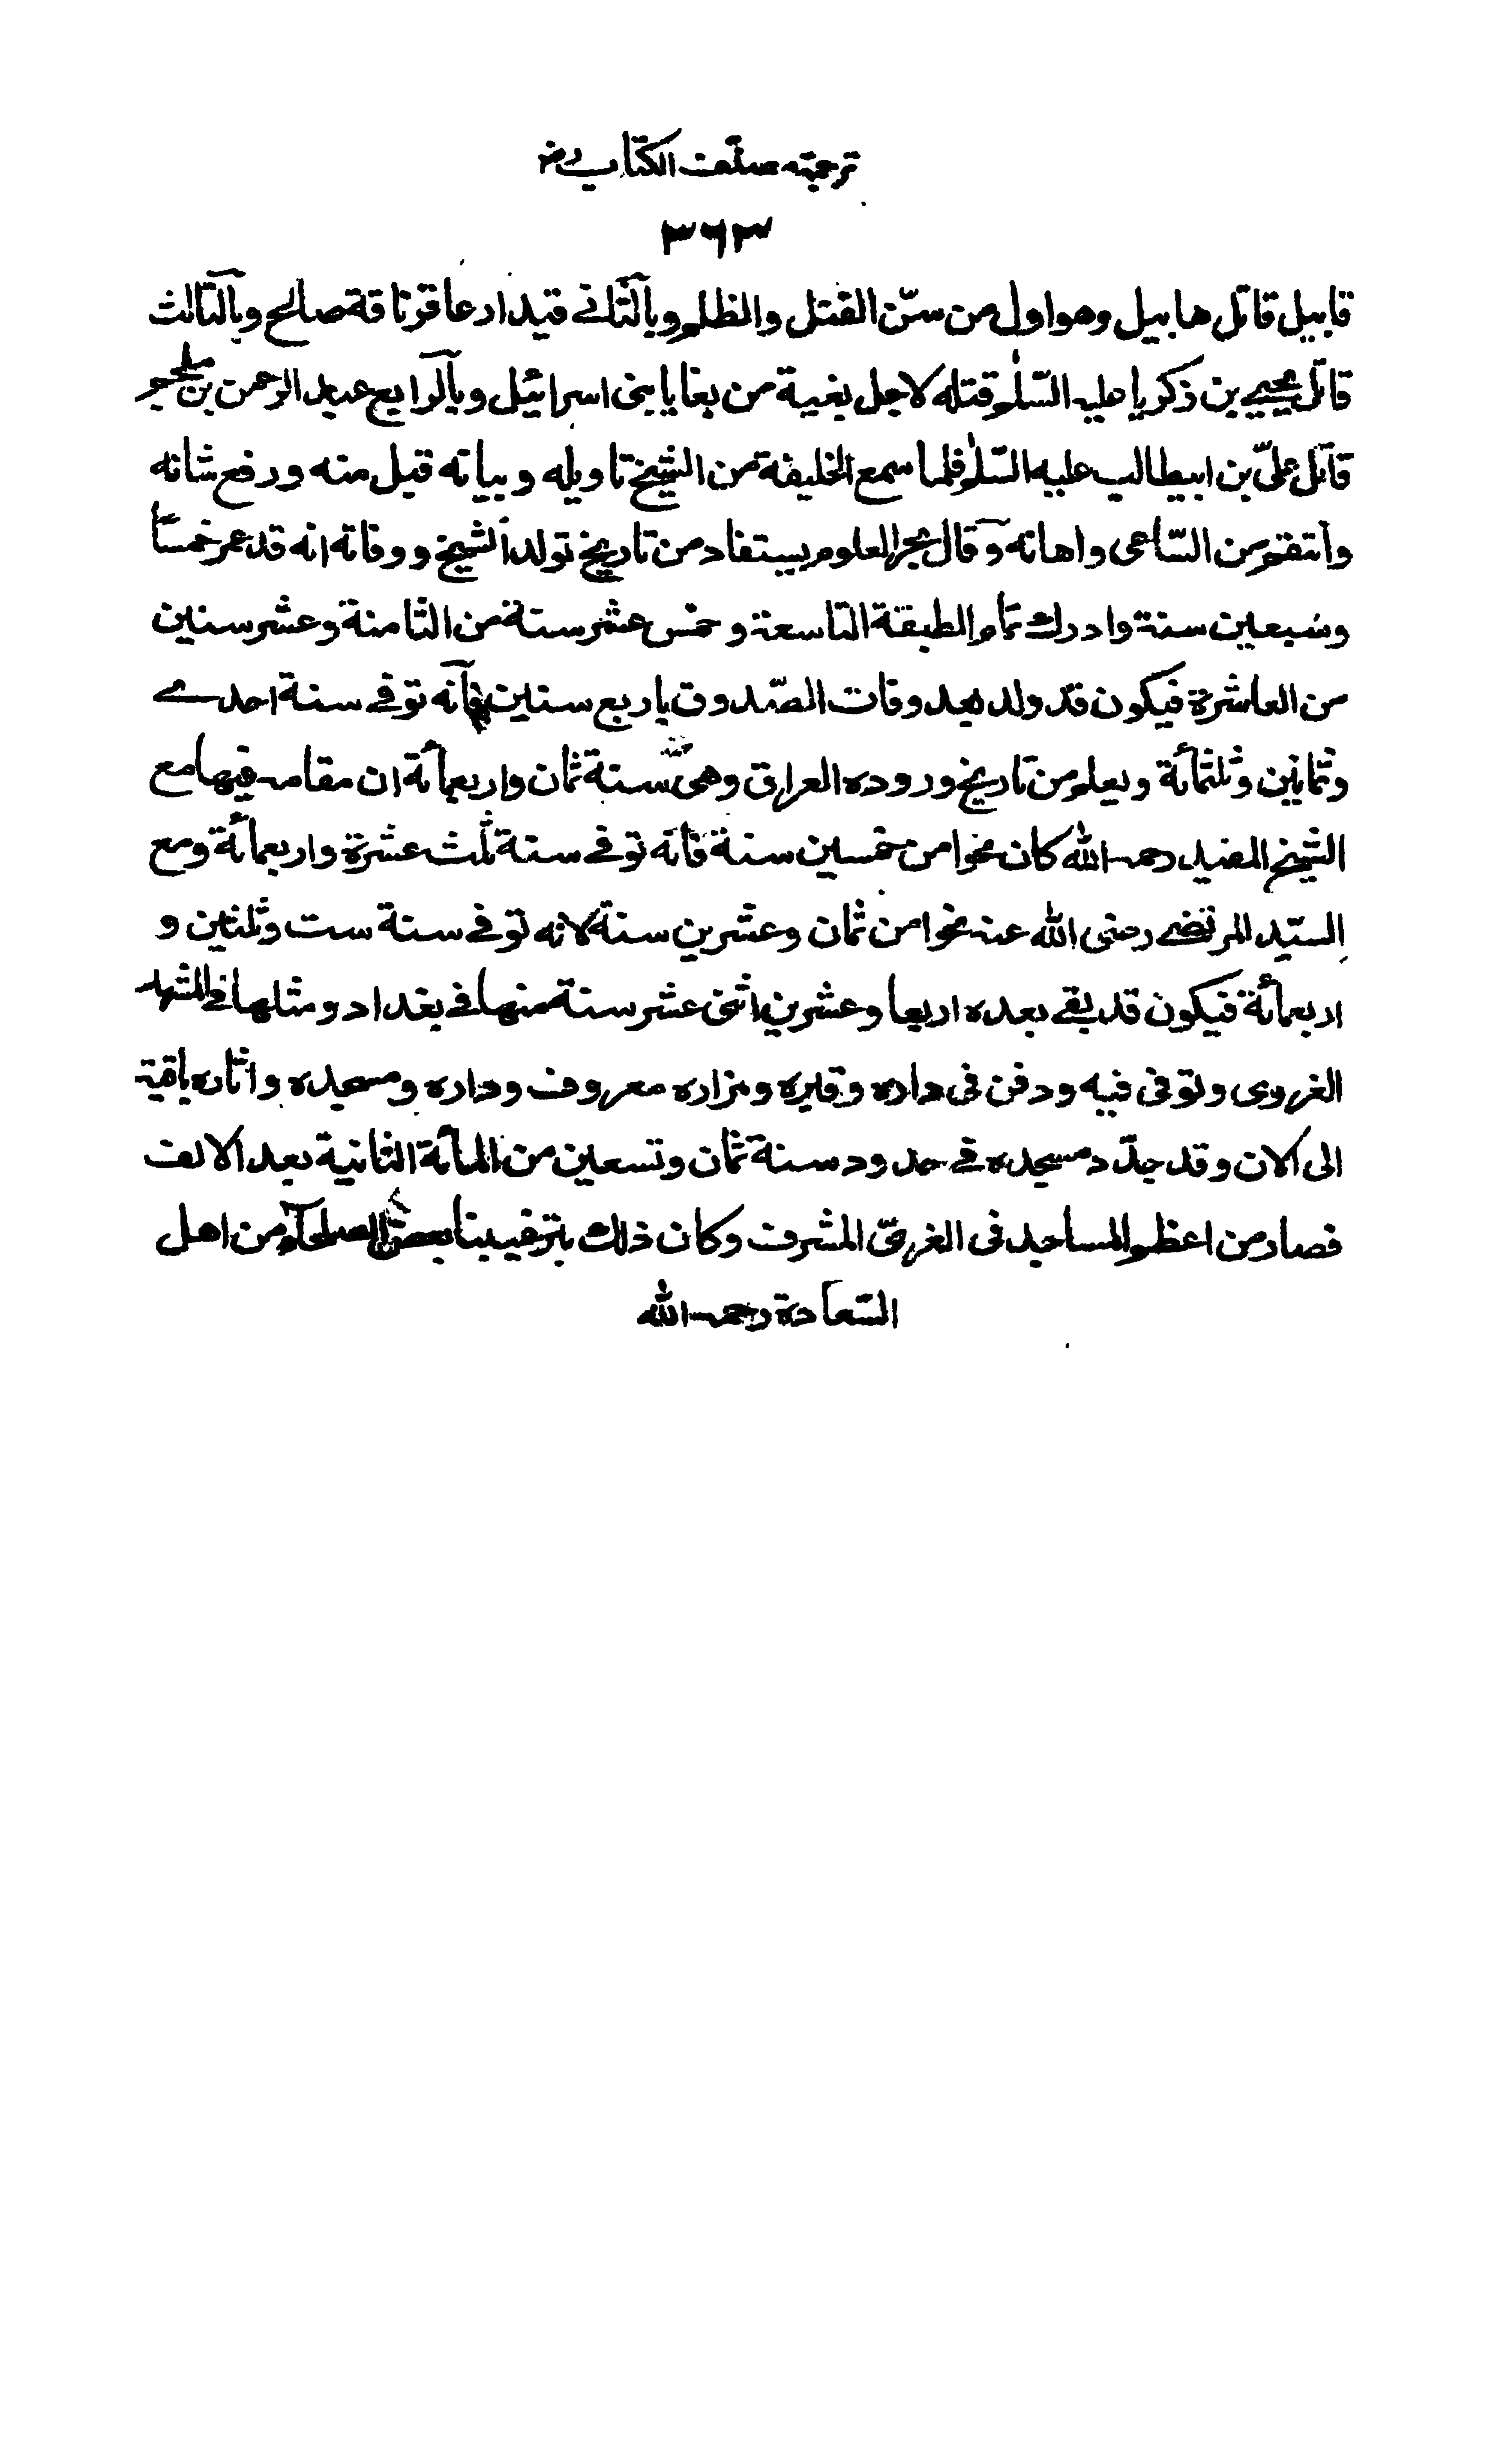 ترجمة مصنف الكتاب رض
٣٦٣
قابيل قاتل هابيل وهو اول من سنّ القتل والظلم وبالثاني قيدار عاقر ناقة صالح وبالثالث
قاتل يحيى بن زكريا عليه السّلم قتله لاجل بغية من بغايا بنى اسرائيل وبالرابع عبد الرحمن بن ملجم
قاتل علىّ بن ابيطالب عليه السّلم فلما سمع الخليفة من الشيخ تاويله وبيانه قبل منه ورفع شانه
وانتقم من السّاعى واهانه وقال بحر العلوم يستفاد من تاريخ تولد الشيخ ووفاته انه قد عمر خمسًا
وسبعين سنة وادرك تمام الطبقة التاسعة وخمس عشر سنة من الثامنة وعشر سنين
من العاشرة فيكون قد ولد بعد وفات الصّدوق باربع سنين فانّه توفى سنة احدے
وثمانين وثلثمائة ويعلم من تاريخ وروده العراق وهى سنة ثمان واربعمائة ان مقامه فيها مع
الشيخ المفيد رحمه الله كان نحوا من خمسين سنة فانّه توفى سنة ثلث عشرة واربعمائة ومع
السيّد المرتضى رضى الله عنه نحوا من ثمان وعشرين سنة لانه توفى سنة ست وثلثين و
اربعمائة فيكون قد بقى بعده اربعا وعشرين اثنى عشر سنة منها فى بغداد ومثلها فى المشهد
الغروى وتوفى فيه ودفن فى داره وقبره ومزاره معروف وداره ومسجده واثاره باقية
الى الان وقد جدّد مسجده فى حدود سنة ثمان وتسعين من المائة الثانية بعد الالف
فصار من اعظم المساجد فى الغرىّ المشرف وكان ذلك بترغيبنا بعض الصلحاء من اهل
السّعادة رحمه الله